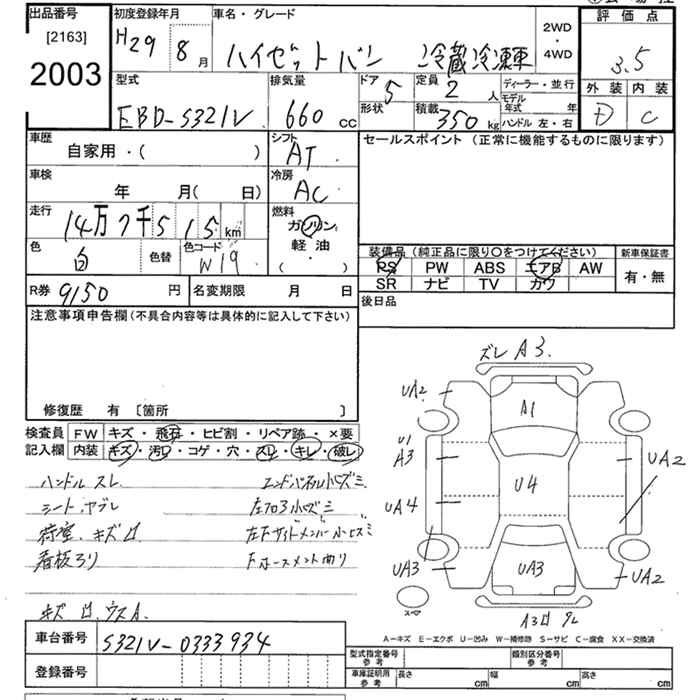 出品番号
[2163]
2003
初度登録年月
H29 8月
車名・グレード
ハイゼットバン 冷蔵冷凍車
2WD
・
4WD
評価点
3.5
外装 内装
D C
型式
EBD-S321V
排気量
660 cc
ドア 5
形状
定員 2 人
積載 350 kg
ディーラー・並行
モデル年式 年
ハンドル 左・右
車歴
自家用・( )
シフト
AT
セールスポイント (正常に機能するものに限ります)
車検
年 月( 日)
冷房
AC
走行
14万7千515km
燃料
ガソリン
軽油
( ・ )
色
白
②
色替
色コード
W19
装備品 (純正品に限り○をつけてください)
PS PW ABS エアB AW
SR ナビ TV カワ
新車保証書
有・無
R券 9150 円
名変期限 月 日
後日品
注意事項申告欄(不具合内容等は具体的に記入して下さい)
修復歴 有 [箇所 ]
検査員記入欄
FW キズ・飛石・ヒビ割・リペア跡・×要
内装 キズ・汚れ・コゲ・穴・スレ・キレ・破レ
ハンドルスレ
シートヤブレ
荷室キズロ
看板アリ
エンドパネル小キズミ
左フロア小キズミ
左下サイドメンバー小キズミ
キズロ ウスA
ズレ A3
UA2
A1
U1
A3
UA2
UA4
U4
UA3
UA3
UA2
スペア
A3ロ
A-キズ E-エクボ U-凹み W-補修跡 S-サビ C-腐食 XX-交換済
車台番号
S321V-0333934
登録番号
型式指定番号
参考
類別区分番号
参考
車庫証明用
参考
長さ cm
幅 cm
高さ cm